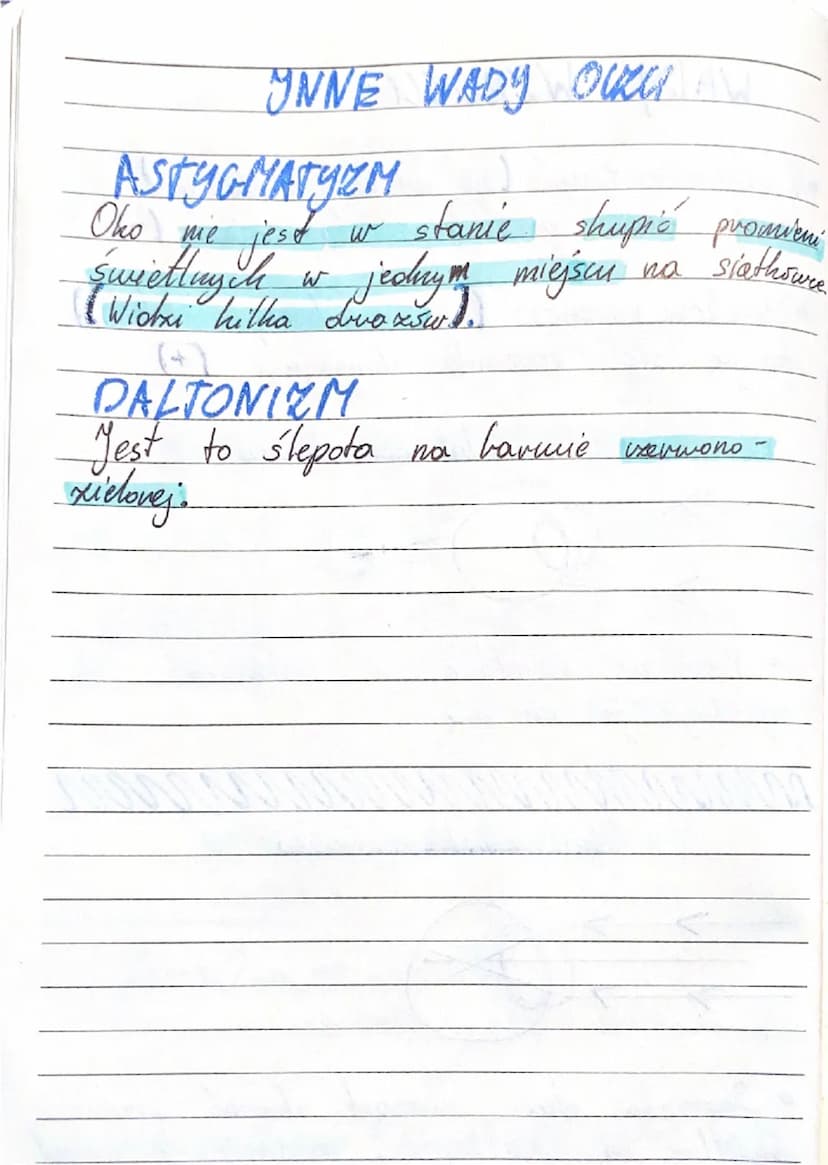 INNE WADY OCZU
ASTYGMATYZM
Oko nie jest w stanie skupić promieni
świetlnych w jednym miejscu na siatkówce
(Widzi kilka obrazów).
DALTONIZM
Jest to ślepota na barwie czerwono-
zielonej.